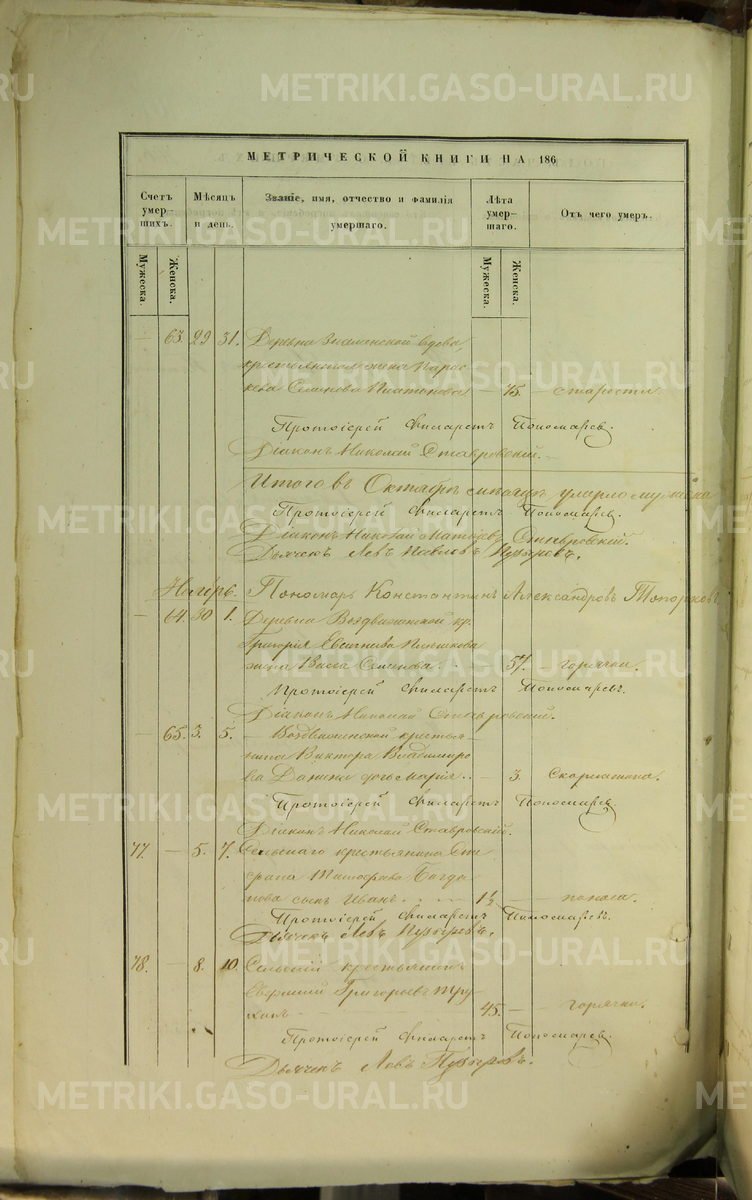 МЕТРИЧЕСКОЙ КНИГИ НА 186
Счетъ умер-шихъ.
Мѣсяцъ и день.
Званіе, имя, отчество и фамилія умершаго.
Лѣта умер-шаго.
Отъ чего умеръ.
Мужеска.
Женска.
Мужеска.
Женска.
— 63 29 31. Деревни Знаменской вдова,
крестьянская жена Парас
кева Семенова Платонова — 75. — старости.
Протоіерей Филаретъ Пономаревъ.
Діаконъ Николай Ставровскій.
Итого въ Октябрѣ умерло
Протоіерей Филаретъ Пономаревъ.
Діаконъ Николай Ставровскій.
Дьячекъ Левъ Павловъ Пузыревъ.
Ноябрь. Пономарь Константинъ Александровъ Топорковъ
— 64. 30 1. Деревни Воздвиженской кр.
Григорія
жена Васса Семенова. — 57. — горячки.
Протоіерей Филаретъ Пономаревъ.
Діаконъ Николай Ставровскій.
— 65. 3. 5. — Воздвиженской крестья-
нина Виктора Владиміро
ва дочь Марія. — 3. Скарлатина.
Протоіерей Филаретъ Пономаревъ.
Діаконъ Николай Ставровскій.
77. — 5. 7. Сельскаго крестьянина
Тимофѣева Богда
нова сынъ Иванъ. 1½ — поноса.
Протоіерей Филаретъ Пономаревъ.
Дьячекъ Левъ Пузыревъ.
78. — 8. 10. Сельскій крестьянинъ
Григорьевъ
45. — горячки.
Протоіерей Филаретъ Пономаревъ.
Дьячекъ Левъ Пузыревъ.
METRIKI.GASO-URAL.RU